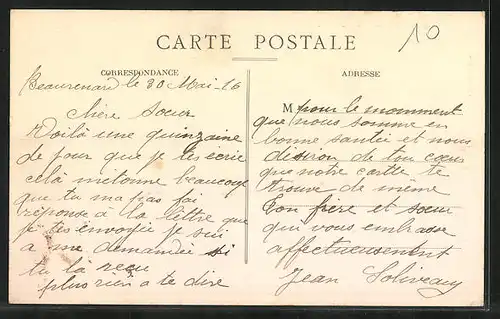 CARTE POSTALE
10
CORRESPONDANCE
ADRESSE
Beaurenard le 30 Mai-16
chère Sœur
Voilà une quinzaine
de jour que je tes écrie
celà metonne beaucoup
que tu ma pas fai
réponse à la lettre que
je tes envoyée je sui
à me demandée si
tu là reçu
plus rien a te dire
M pour le momment
que nous somme en
bonne santée et nous
desiron de tou cœur
que notre cartte te
trouve de même
Ton frère et sœur
qui vous embrasse
affectueusement
Jean